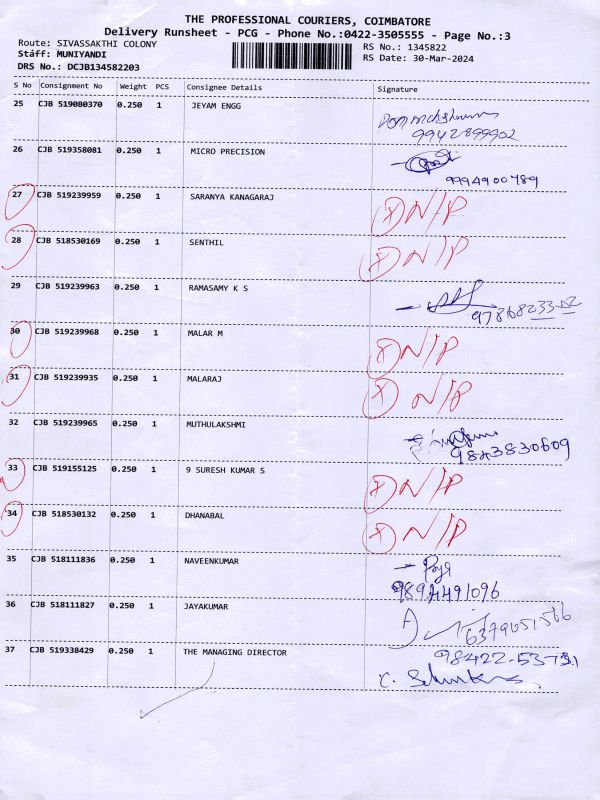 THE PROFESSIONAL COURIERS, COIMBATORE
Delivery Runsheet - PCG - Phone No.:0422-3505555 - Page No.:3
Route: SIVASSAKTHI COLONY
RS No.: 1345822
Staff: MUNIYANDI
RS Date: 30-Mar-2024
DRS No.: DCJB134582203
S No Consignment No Weight PCS Consignee Details Signature
25 CJB 519080370 0.250 1 JEYAM ENGG
9942899902
26 CJB 519358081 0.250 1 MICRO PRECISION
9994900789
27 CJB 519239959 0.250 1 SARANYA KANAGARAJ N/P
28 CJB 518530169 0.250 1 SENTHIL N/P
29 CJB 519239963 0.250 1 RAMASAMY K S
30 CJB 519239968 0.250 1 MALAR M N/P
31 CJB 519239935 0.250 1 MALARAJ N/P
32 CJB 519239965 0.250 1 MUTHULAKSHMI
9843830609
33 CJB 519155125 0.250 1 9 SURESH KUMAR S N/P
34 CJB 518530132 0.250 1 DHANABAL N/P
35 CJB 518111836 0.250 1 NAVEENKUMAR
9894491096
36 CJB 518111827 0.250 1 JAYAKUMAR
6379051566
37 CJB 519338429 0.250 1 THE MANAGING DIRECTOR